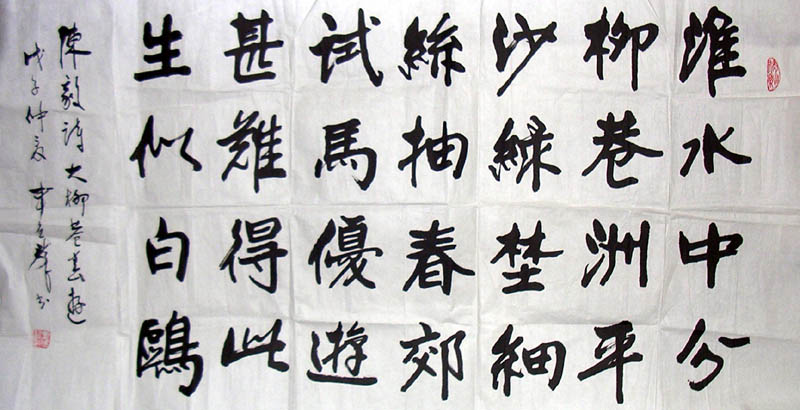 淮水中分
柳巷洲平
沙綠埜細
絲抽春郊
試馬優遊
甚難得此
生似白鷗
陳毅詩大柳巷春遊
戊子仲夏 書